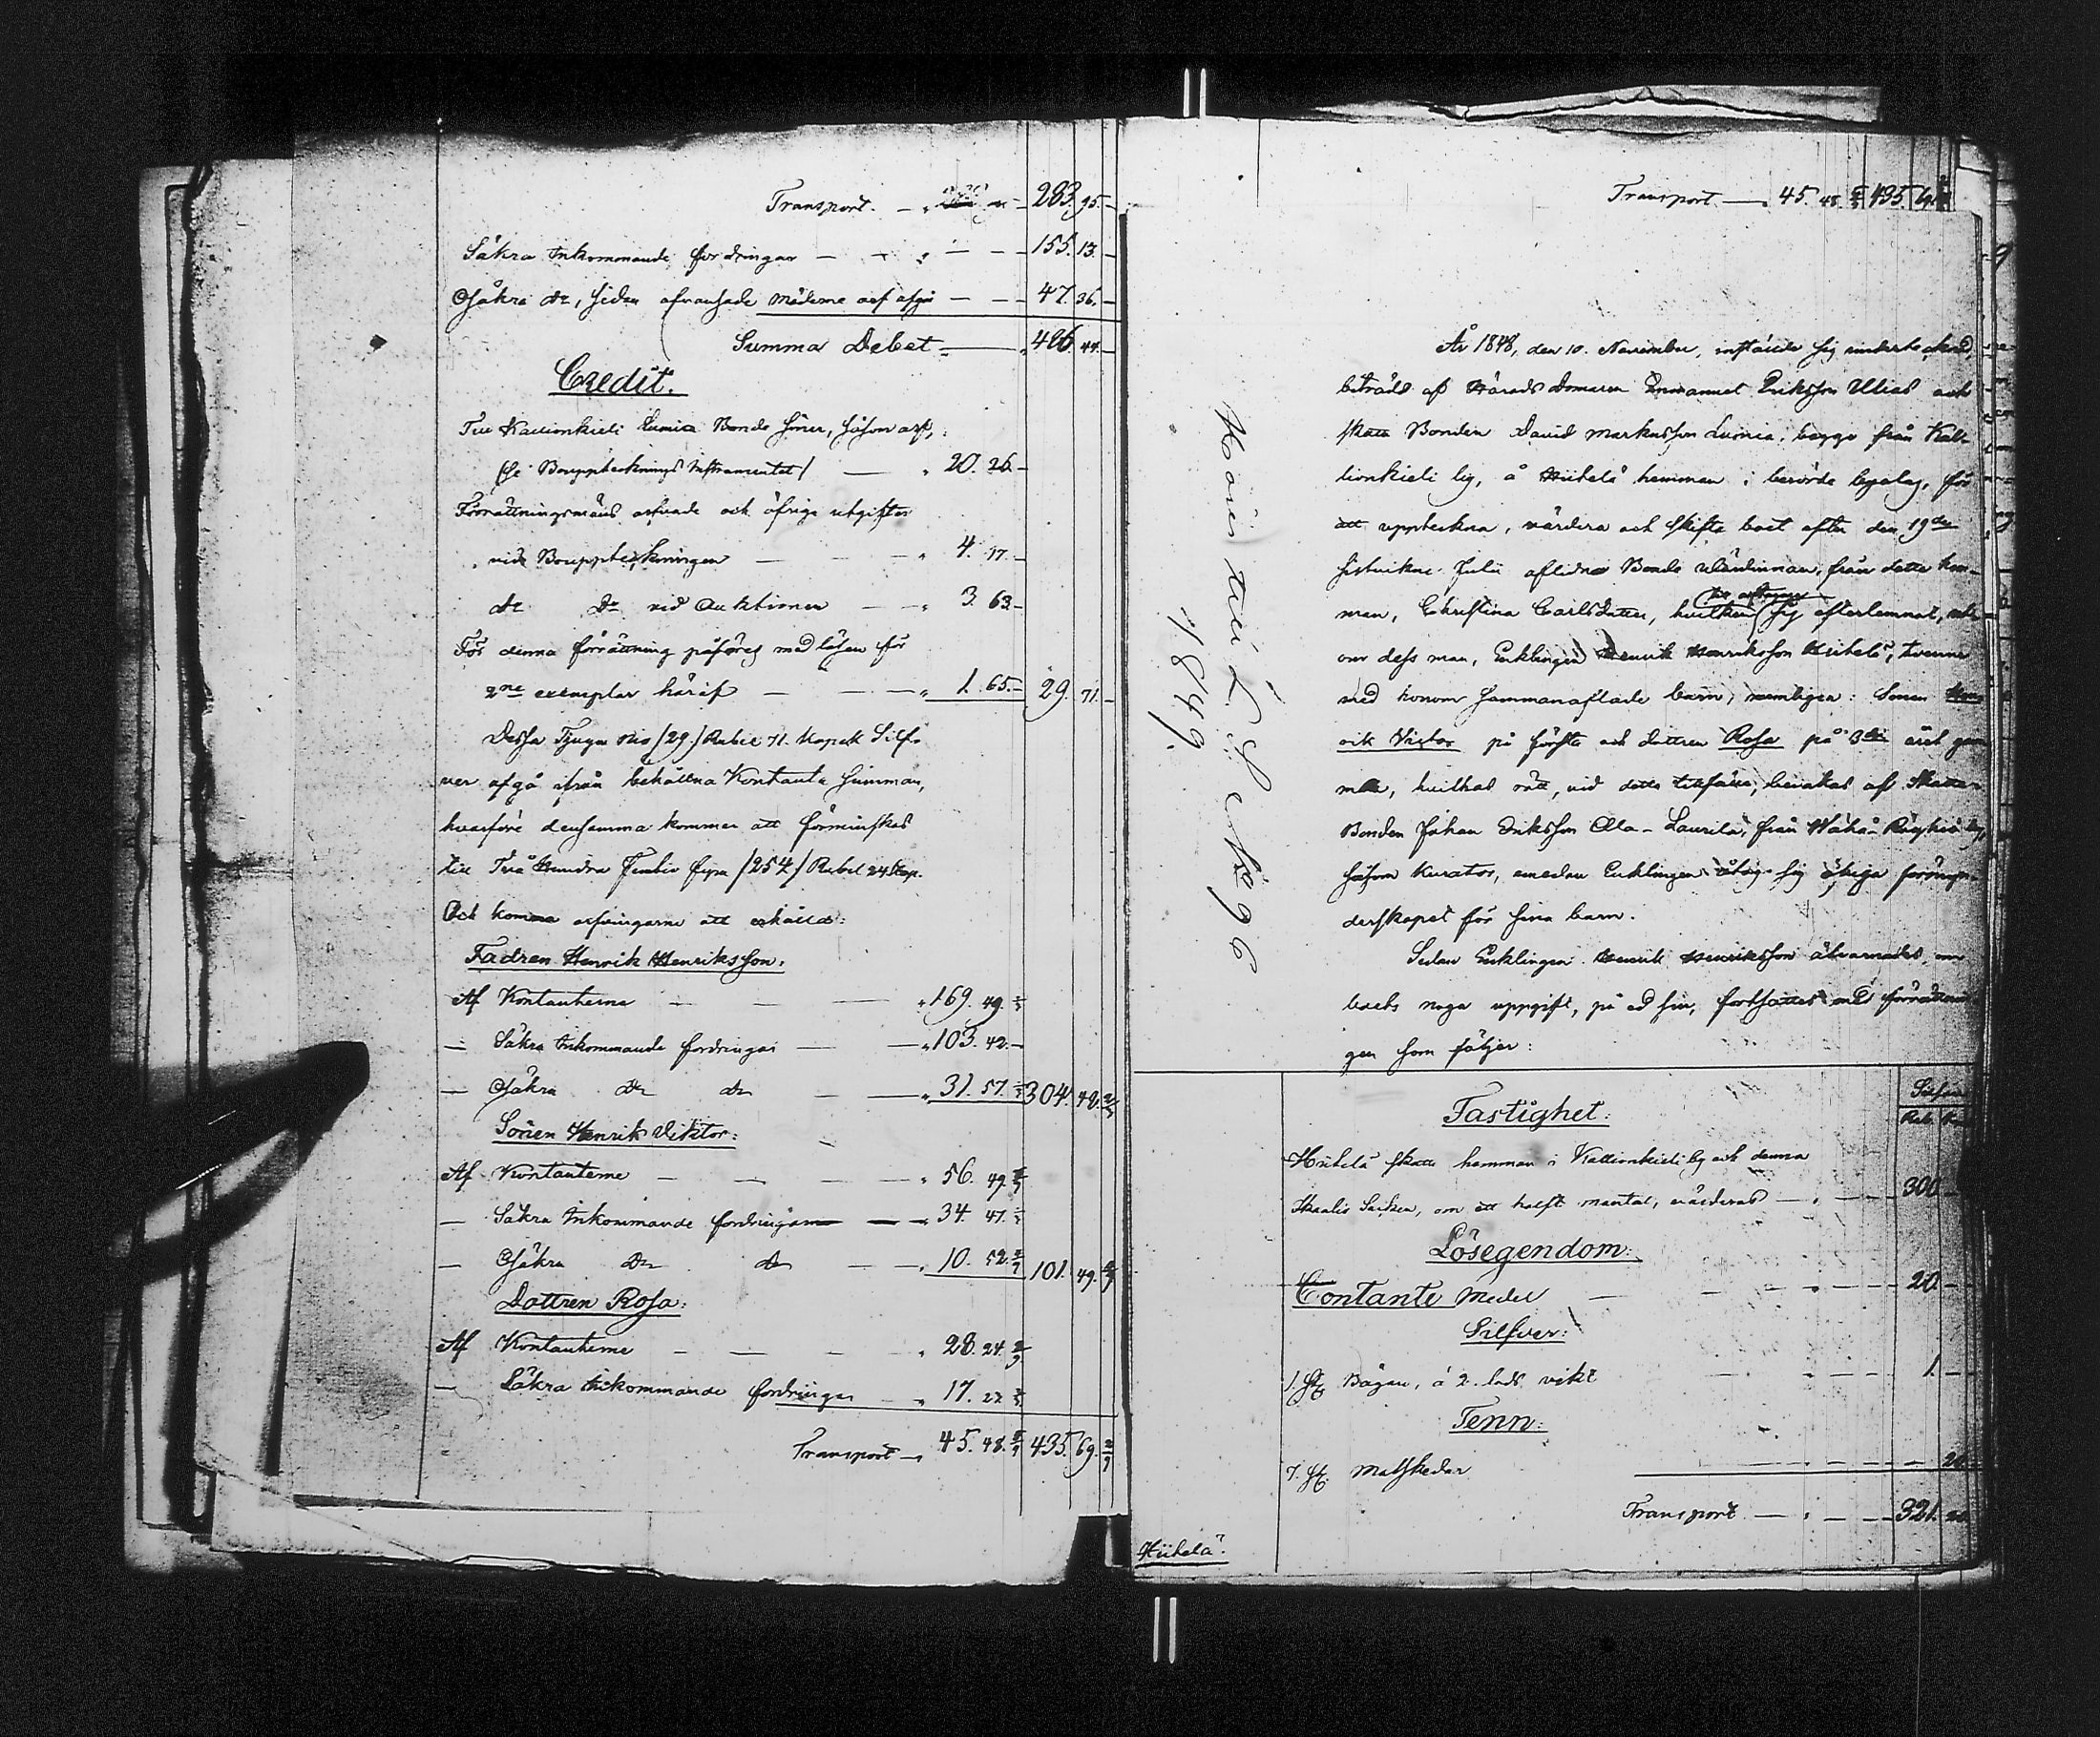 Transport. — 283. 95. —
Säkra Inkommande fordringar — — 155. 13. —
Osäkra do, sedan — — 47. 36. —
Summa Debet — 486. 44. —
Credit.
Till Kallionkieli Lumia Bonde söner, såsom arf,
/se Bouppteknings Instrumentet/ — 20. 26. —
Förrättningsmäns arfvode och öfriga utgifter
vid Bouppteckningen — — 4. 17. —
do do vid Auktionen — — 3. 63. —
För denna förrättning påföres med lösen för
2ne exemplar häraf — — 1. 65. — 29. 71. —
Dessa Tjugu nio /29./ Rubel 71. Kopek Silf-
ver afgå ifrån behållna Kontanta summan,
hvarföre densamma kommer att förminskas
till Två Hundra Femtio fyra /254/ Rubel 24 Kop.
Och komma arfvingarne att erhålla:
Fadren Henrik Henriksson:
Af Kontanterne — — — 169. 49.
— Säkra Inkommande fordringar — — 103. 42. —
— Osäkra do do — — 31. 57. 304. 48.
Sonen Henrik Viktor:
Af Kontanterne — — — 56. 49.
— Säkra Inkommande fordringar — — 34. 47.
— Osäkra do do — — 10. 52. 101. 49.
Dottren Rosa:
Af Kontanterne — — — 28. 24.
— Säkra Inkommande fordringar — 17.
Transport — 45. 48. 435. 69.
Transport — 45. 48. 435. 69.
År 1848, den 10. November, inställde sig undertecknad,
biträdd af Härads Domaren Emanuel Eriksson Ulias och
skatte Bonden David Markusson Lumia, begge från Kal-
lionkieli by, å Hiitelä hemman i berörde byalag, för
att uppteckna, värdera och skifta boet efter den 19de
sistvikne Julii aflidna Bonde Värdinnan, från detta hem-
man, Christina Carlsdotter, hvilken sig efterlemnat,
om dess man, Enklingen Henrik Henriksson Hiitelä, tvenne
med honom sammanaflade barn, nemligen: Sonen Hen-
rik Victor på första och dottren Rosa på 3die året gam-
mal, hvilkas rätt, vid detta tillfälle, bevakas af Skatte-
Bonden Johan Eriksson Ala-Laurila, från Wähä-Röyhiö by,
såsom Kurator, emedan Enklingen sig förmyn-
derskapet för sina barn.
Sedan Enklingen Henrik Henriksson åtvarnades, om
boets noga uppgift, på ed sin, fortsattes med förrättnin-
gen som följer:
Silfver
Rub. Kop.
Fastighet:
Hiitelä skatte hemman i Kallionkieli by och denna
Socken, om ett halft mantal, värderas — 300 —
Lösegendom:
Contante Medel — — — 20. —
Silfver:
1. st. Bägare, á 2. lods vikt — — — 1. —
Tenn:
7. st. Matskedar — — 20.
Transport — — 321. 20.
1849.
Hiitelä.